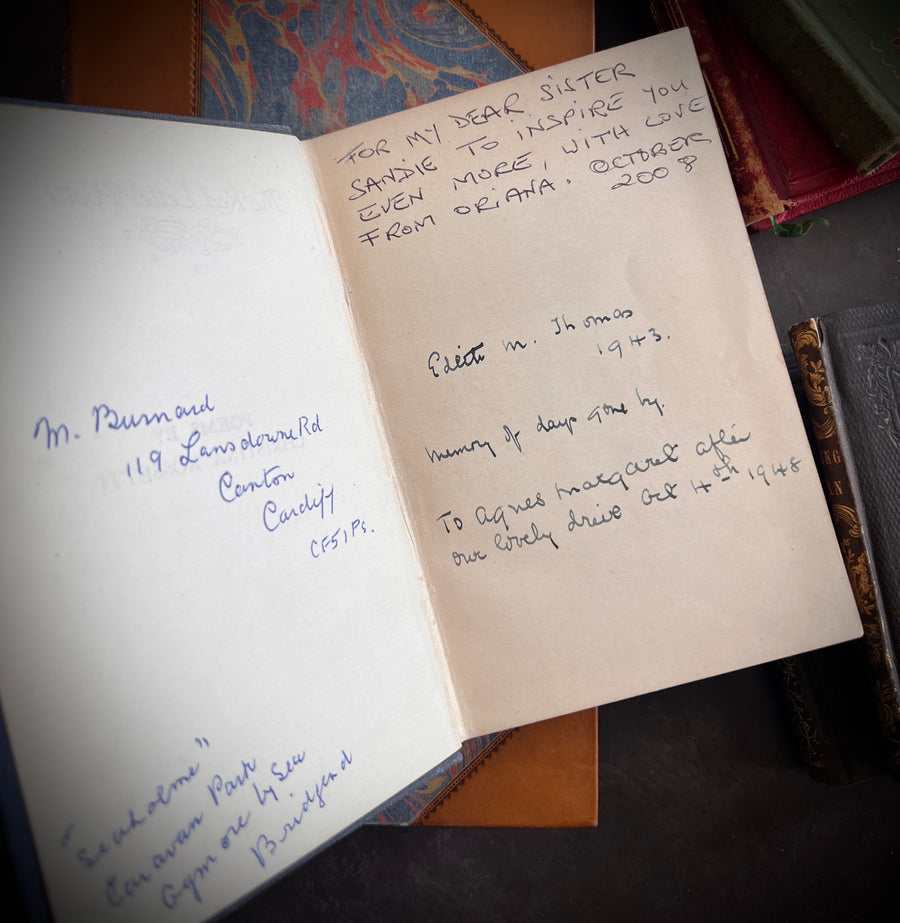 M. Burnard
119 Lansdowne Rd
Canton
Cardiff
CF5 1Ps.
"Seaholme"
Caravan Park
Ogmore by Sea
Bridgend
FOR MY DEAR SISTER
SANDIE TO INSPIRE YOU
EVEN MORE, WITH LOVE
FROM ORIANA. OCTOBER
2008
Edith M. Thomas
1943.
Memory of days gone by.
To Agnes Margaret after
our lovely drive Oct 4th 1948
POEMS BY